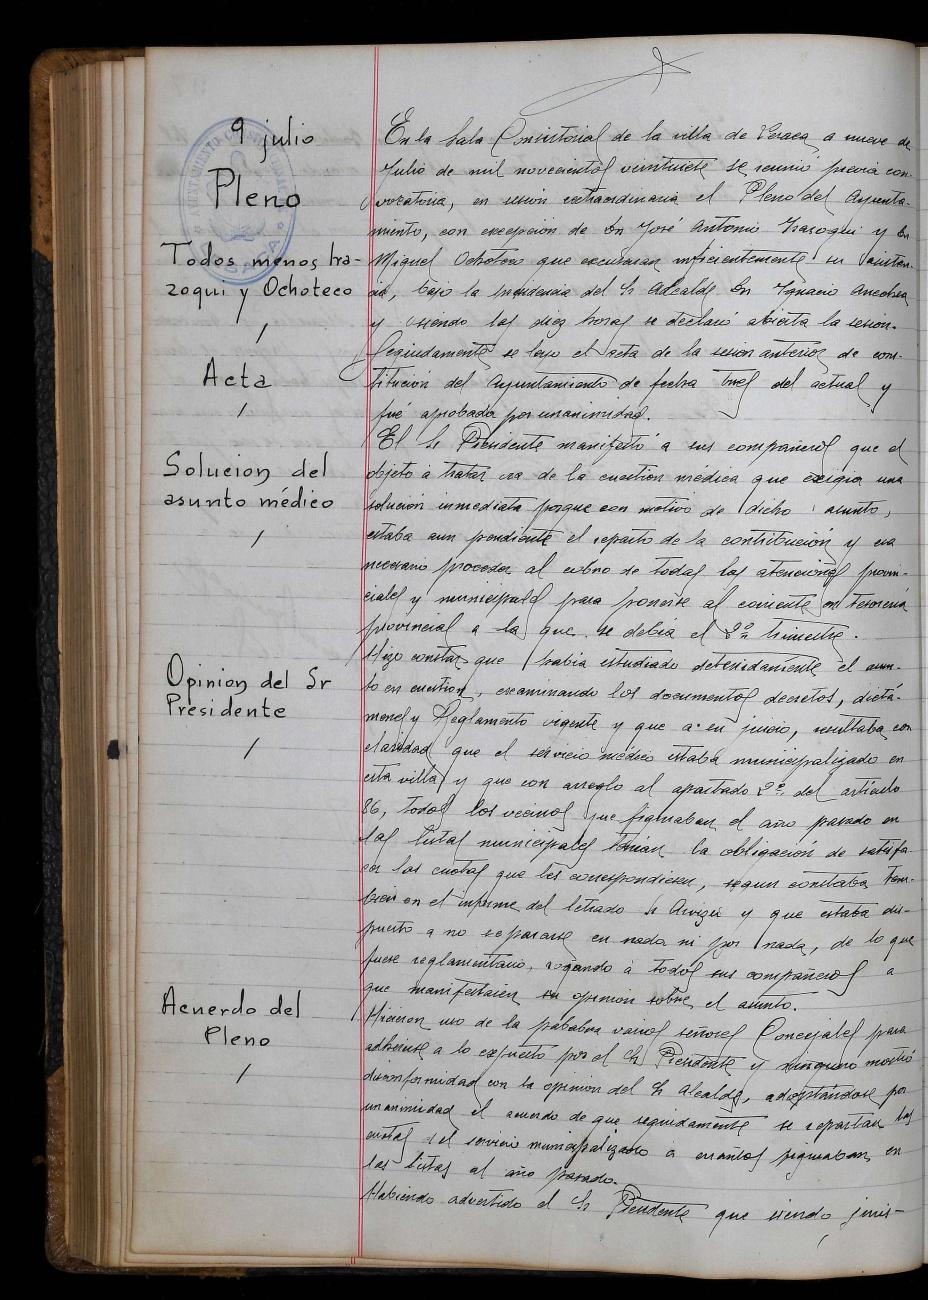 9 julio
Pleno
Todos menos Ira-
zoqui y Ochoteco
Acta
Solucion del
asunto médico
Opinion del Sr
Presidente
Acuerdo del
Pleno
En la Sala Consistorial de la villa de Vera a nueve de
Julio de mil novecientos veintisiete se reunió previa con-
vocatoria, en sesion extraordinaria el Pleno del Ayunta-
miento, con excepcion de Dn José Antonio Irazoqui y Dn
Miguel Ochoteco que excusaron suficientemente su asisten-
cia, bajo la presidencia del Sr Alcalde Dn Ignacio
y siendo las diez horas se declaró abierta la sesion.
Seguidamente se leyo el acta de la sesion anterior de cons-
titución del Ayuntamiento de fecha tres del actual y
fué aprobada por unanimidad.
El Sr Presidente manifestó a sus compañeros que el
objeto a tratar era de la cuestion médica que exigia una
solución inmediata porque con motivo de dicho asunto,
estaba aun pendiente el reparto de la contribución y era
necesario proceder al cobro de todas las atenciones provin-
ciales y municipales para ponerse al corriente en Tesoreria
provincial a la que se debia el 2º trimestre.
Hizo constar que habia estudiado detenidamente el asun-
to en cuestion, examinando los documentos decretos, dictá-
menes y Reglamento vigente y que a su juicio, resultaba con
claridad que el servicio médico estaba municipalizado en
esta villa y que con arreglo al apartado 2º del articulo
86, todos los vecinos que figuraban el año pasado en
las listas municipales tenian la obligación de satisfa-
cer las cuotas que les correspondiesen, segun constaba tam-
bien en el informe del letrado Sr Arvizu y que estaba dis-
puesto a no separarse en nada ni por nada, de lo que
fuese reglamentario, rogando a todos sus compañeros a
que manifestasen su opinion sobre el asunto.
Hicieron uso de la palabra varios señores Concejales para
adherirse a lo expuesto por el Sr Presidente y ninguno mostró
disconformidad con la opinion del Sr Alcalde, adoptándose por
unanimidad el acuerdo de que seguidamente se repartan las
cuotas del servicio municipalizado a cuantos figuraban en
las listas al año pasado.
Habiendo advertido el Sr Presidente que siendo juris-